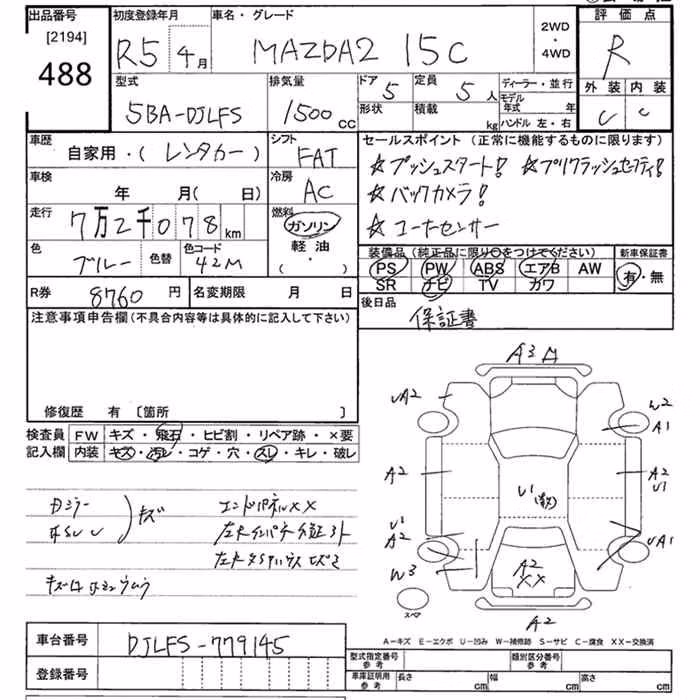 出品番号 初度登録年月 車名・グレード 2WD・4WD 評価点
[2194]
488 R5 4月 MAZDA2 15C R
外装 内装
C
型式 排気量 ドア 5 定員 5人 ディーラー・並行
5BA-DJLFS 1500cc 形状 積載 kg モデル年式 年
ハンドル 左・右
車歴 シフト セールスポイント (正常に機能するものに限ります)
自家用・(レンタカー) FAT ☆プッシュスタート! ☆プリクラッシュセーフティ!
車検 年 月(日) 冷房 AC ☆バックカメラ!
走行 7万2千078km 燃料 ガソリン 軽油 (・) ☆コーナーセンサー
色 ブルー 色替 色コード 42M
装備品(純正品に限り○をつけてください) 新車保証書
PS PW ABS エアB AW 有・無
SR ナビ TV カワ
R券 8760円 名変期限 月 日 後日品
保証書
注意事項申告欄(不具合内容等は具体的に記入して下さい)
修復歴 有 〔箇所 〕
検査員 FW キズ・飛石・ヒビ割・リペア跡・×要
記入欄 内装 キズ・汚レ・コゲ・穴・スレ・キレ・破レ
A3
UA2 W2
A1
A2 A2
U1
U1
U1
A2 UA1
W3 A2
XX
スペア A2
キズ エンドパネルXX
A-キズ E-エクボ U-凹み W-補修跡 S-サビ C-腐食 XX-交換済
車台番号 DJLFS-779145
型式指定番号 参考 類別区分番号 参考
登録番号 車庫証明用 参考 長さ cm 幅 cm 高さ cm